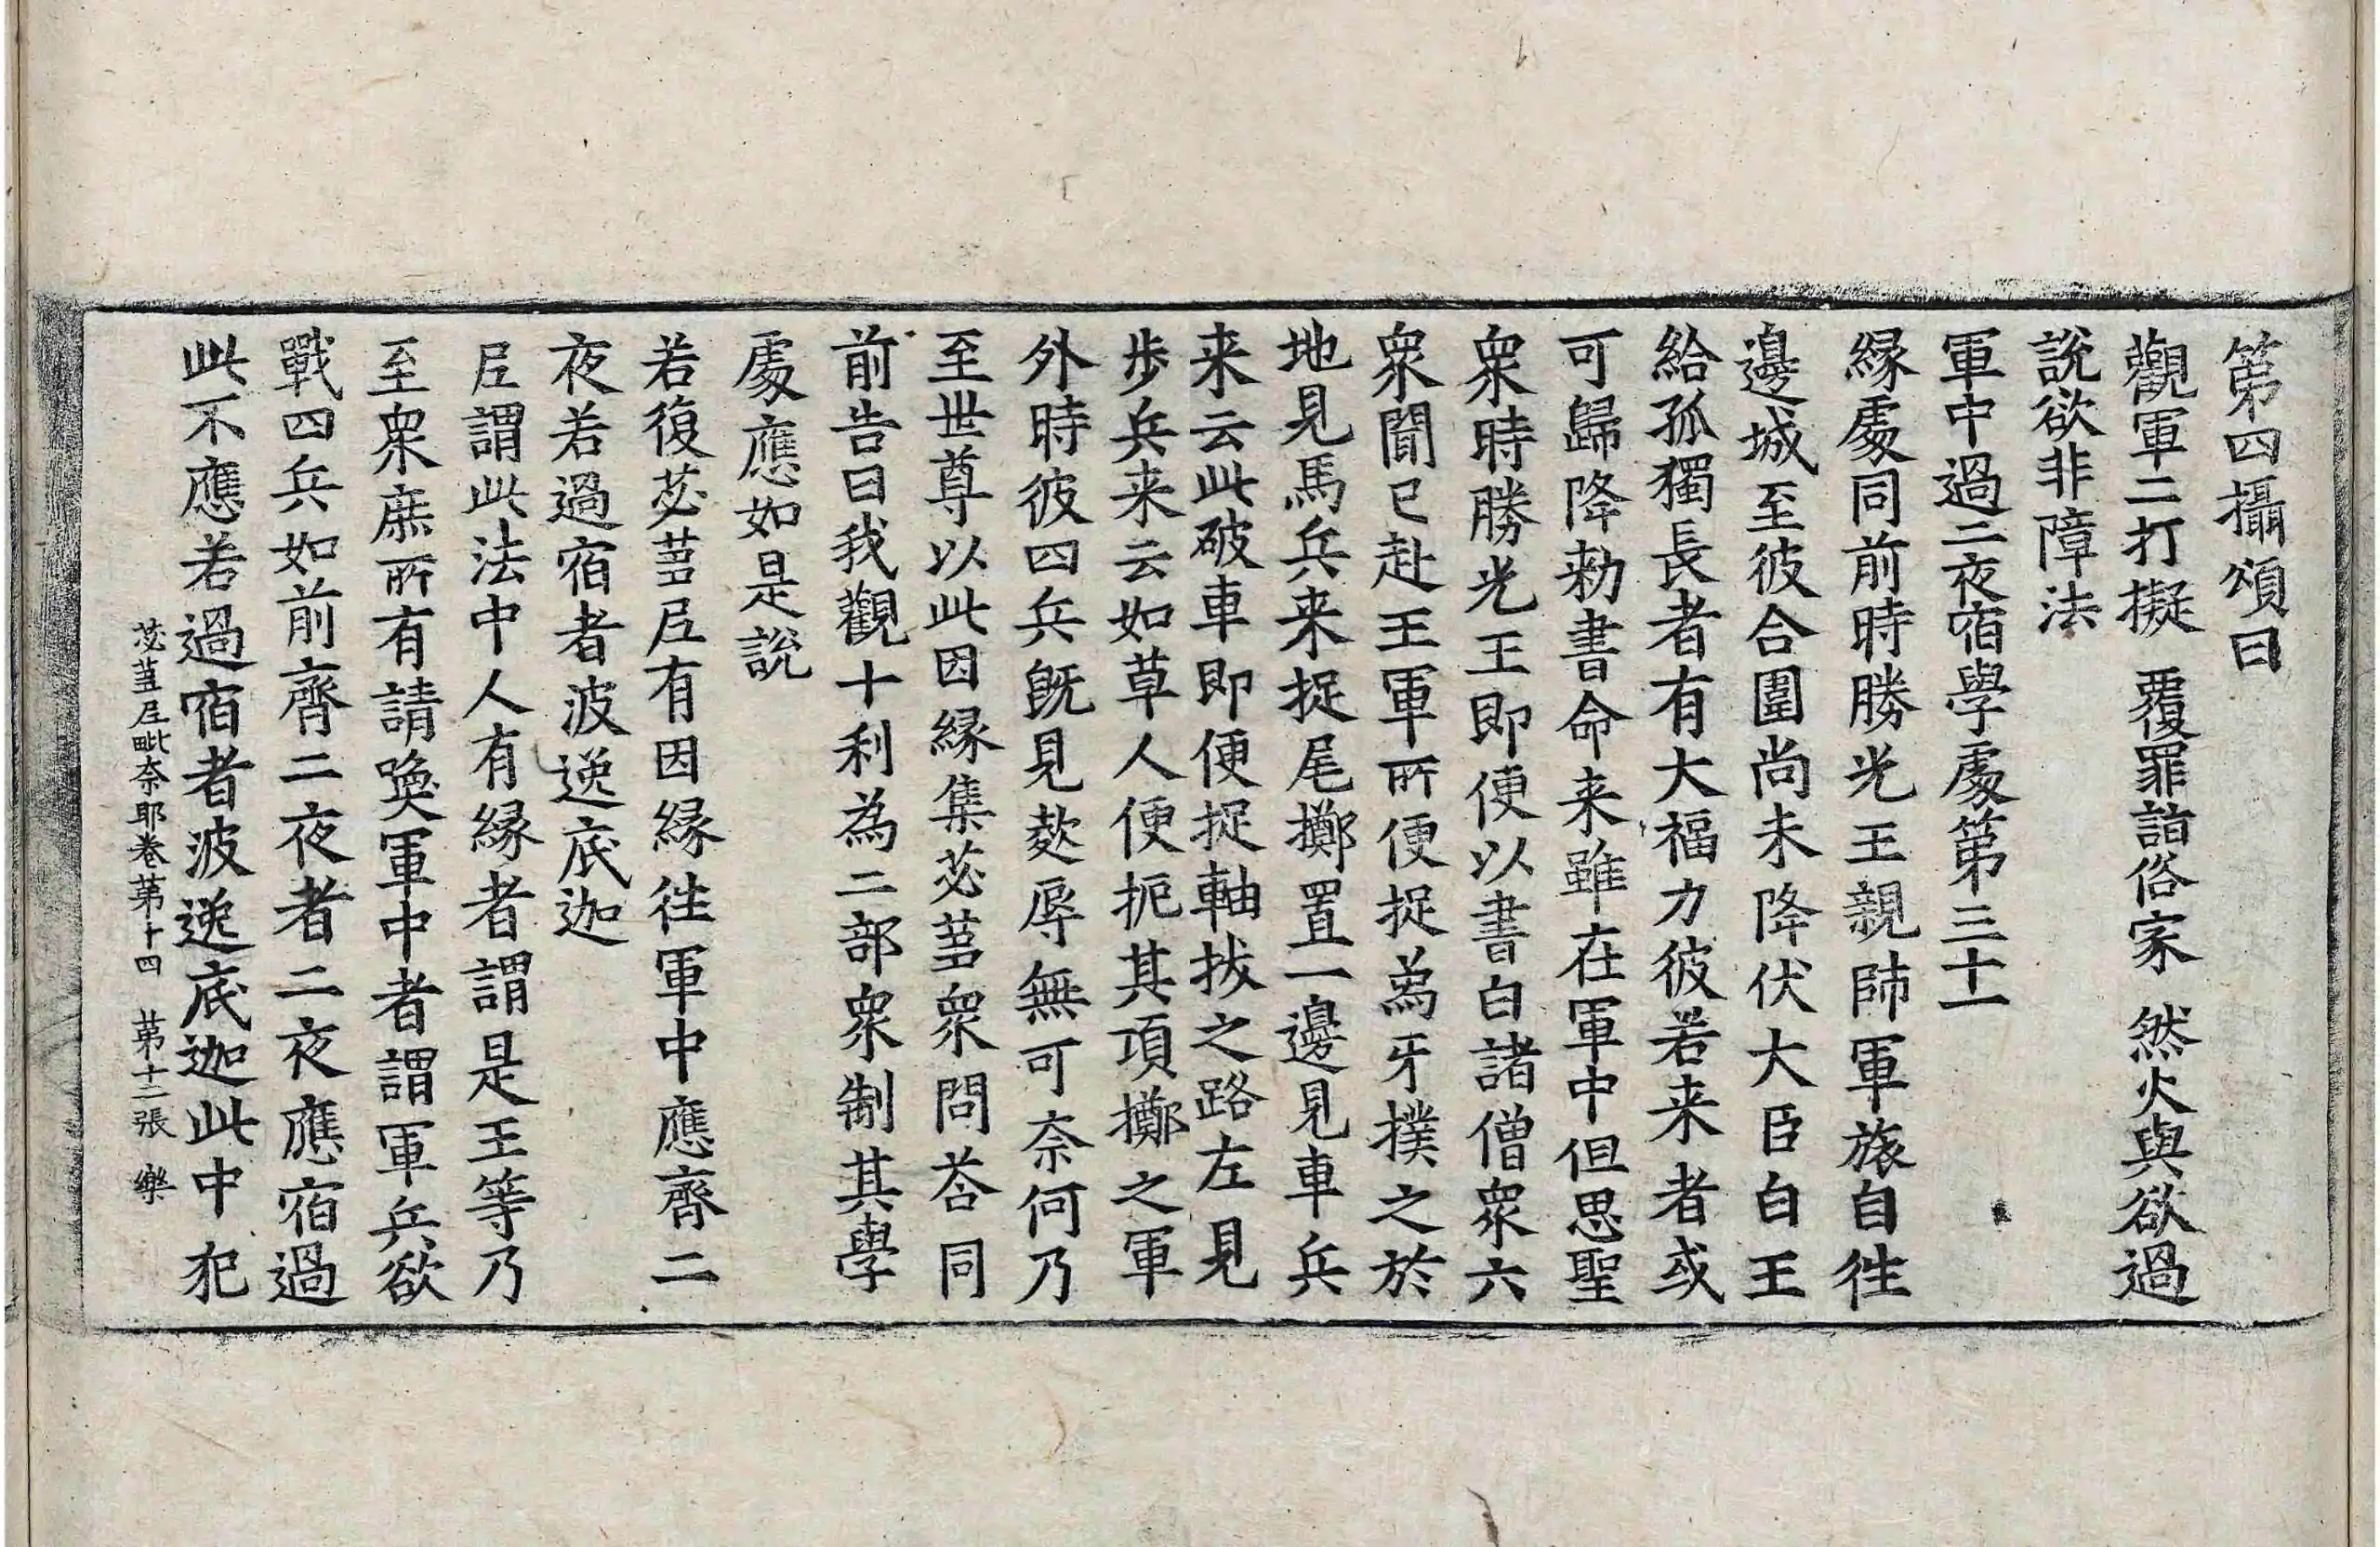 第四攝頌曰
觀軍二打擬　覆罪詣俗家　然火與欲過
說欲非障法
軍中過二夜宿學處第三十一
縁處同前時勝光王親帥軍旅自往
邊城至彼合圍尚未降伏大臣白王
給孤獨長者有大福力彼若来者或
可歸降勑書命来雖在軍中但思聖
衆時勝光王即便以書白諸僧衆六
衆聞已赴王軍所便捉爲牙撲之於
地見馬兵来捉尾擲置一邊見車兵
来云此破車即便捉軸拔之路左見
步兵来云如草人便扼其項擲之軍
外時彼四兵旣見欺辱無可奈何乃
至世尊以此因縁集苾蒭衆問荅同
前告曰我觀十利為二部衆制其學
處應如是說
若復苾蒭尼有因縁往軍中應齊二
夜若過宿者波逸底迦
尼謂此法中人有縁者謂是王等乃
至衆庶所有請喚軍中者謂軍兵欲
戰四兵如前齊二夜者二夜應宿過
此不應若過宿者波逸底迦此中犯
苾蒭尼毗奈耶卷第十四　第十二張　樂